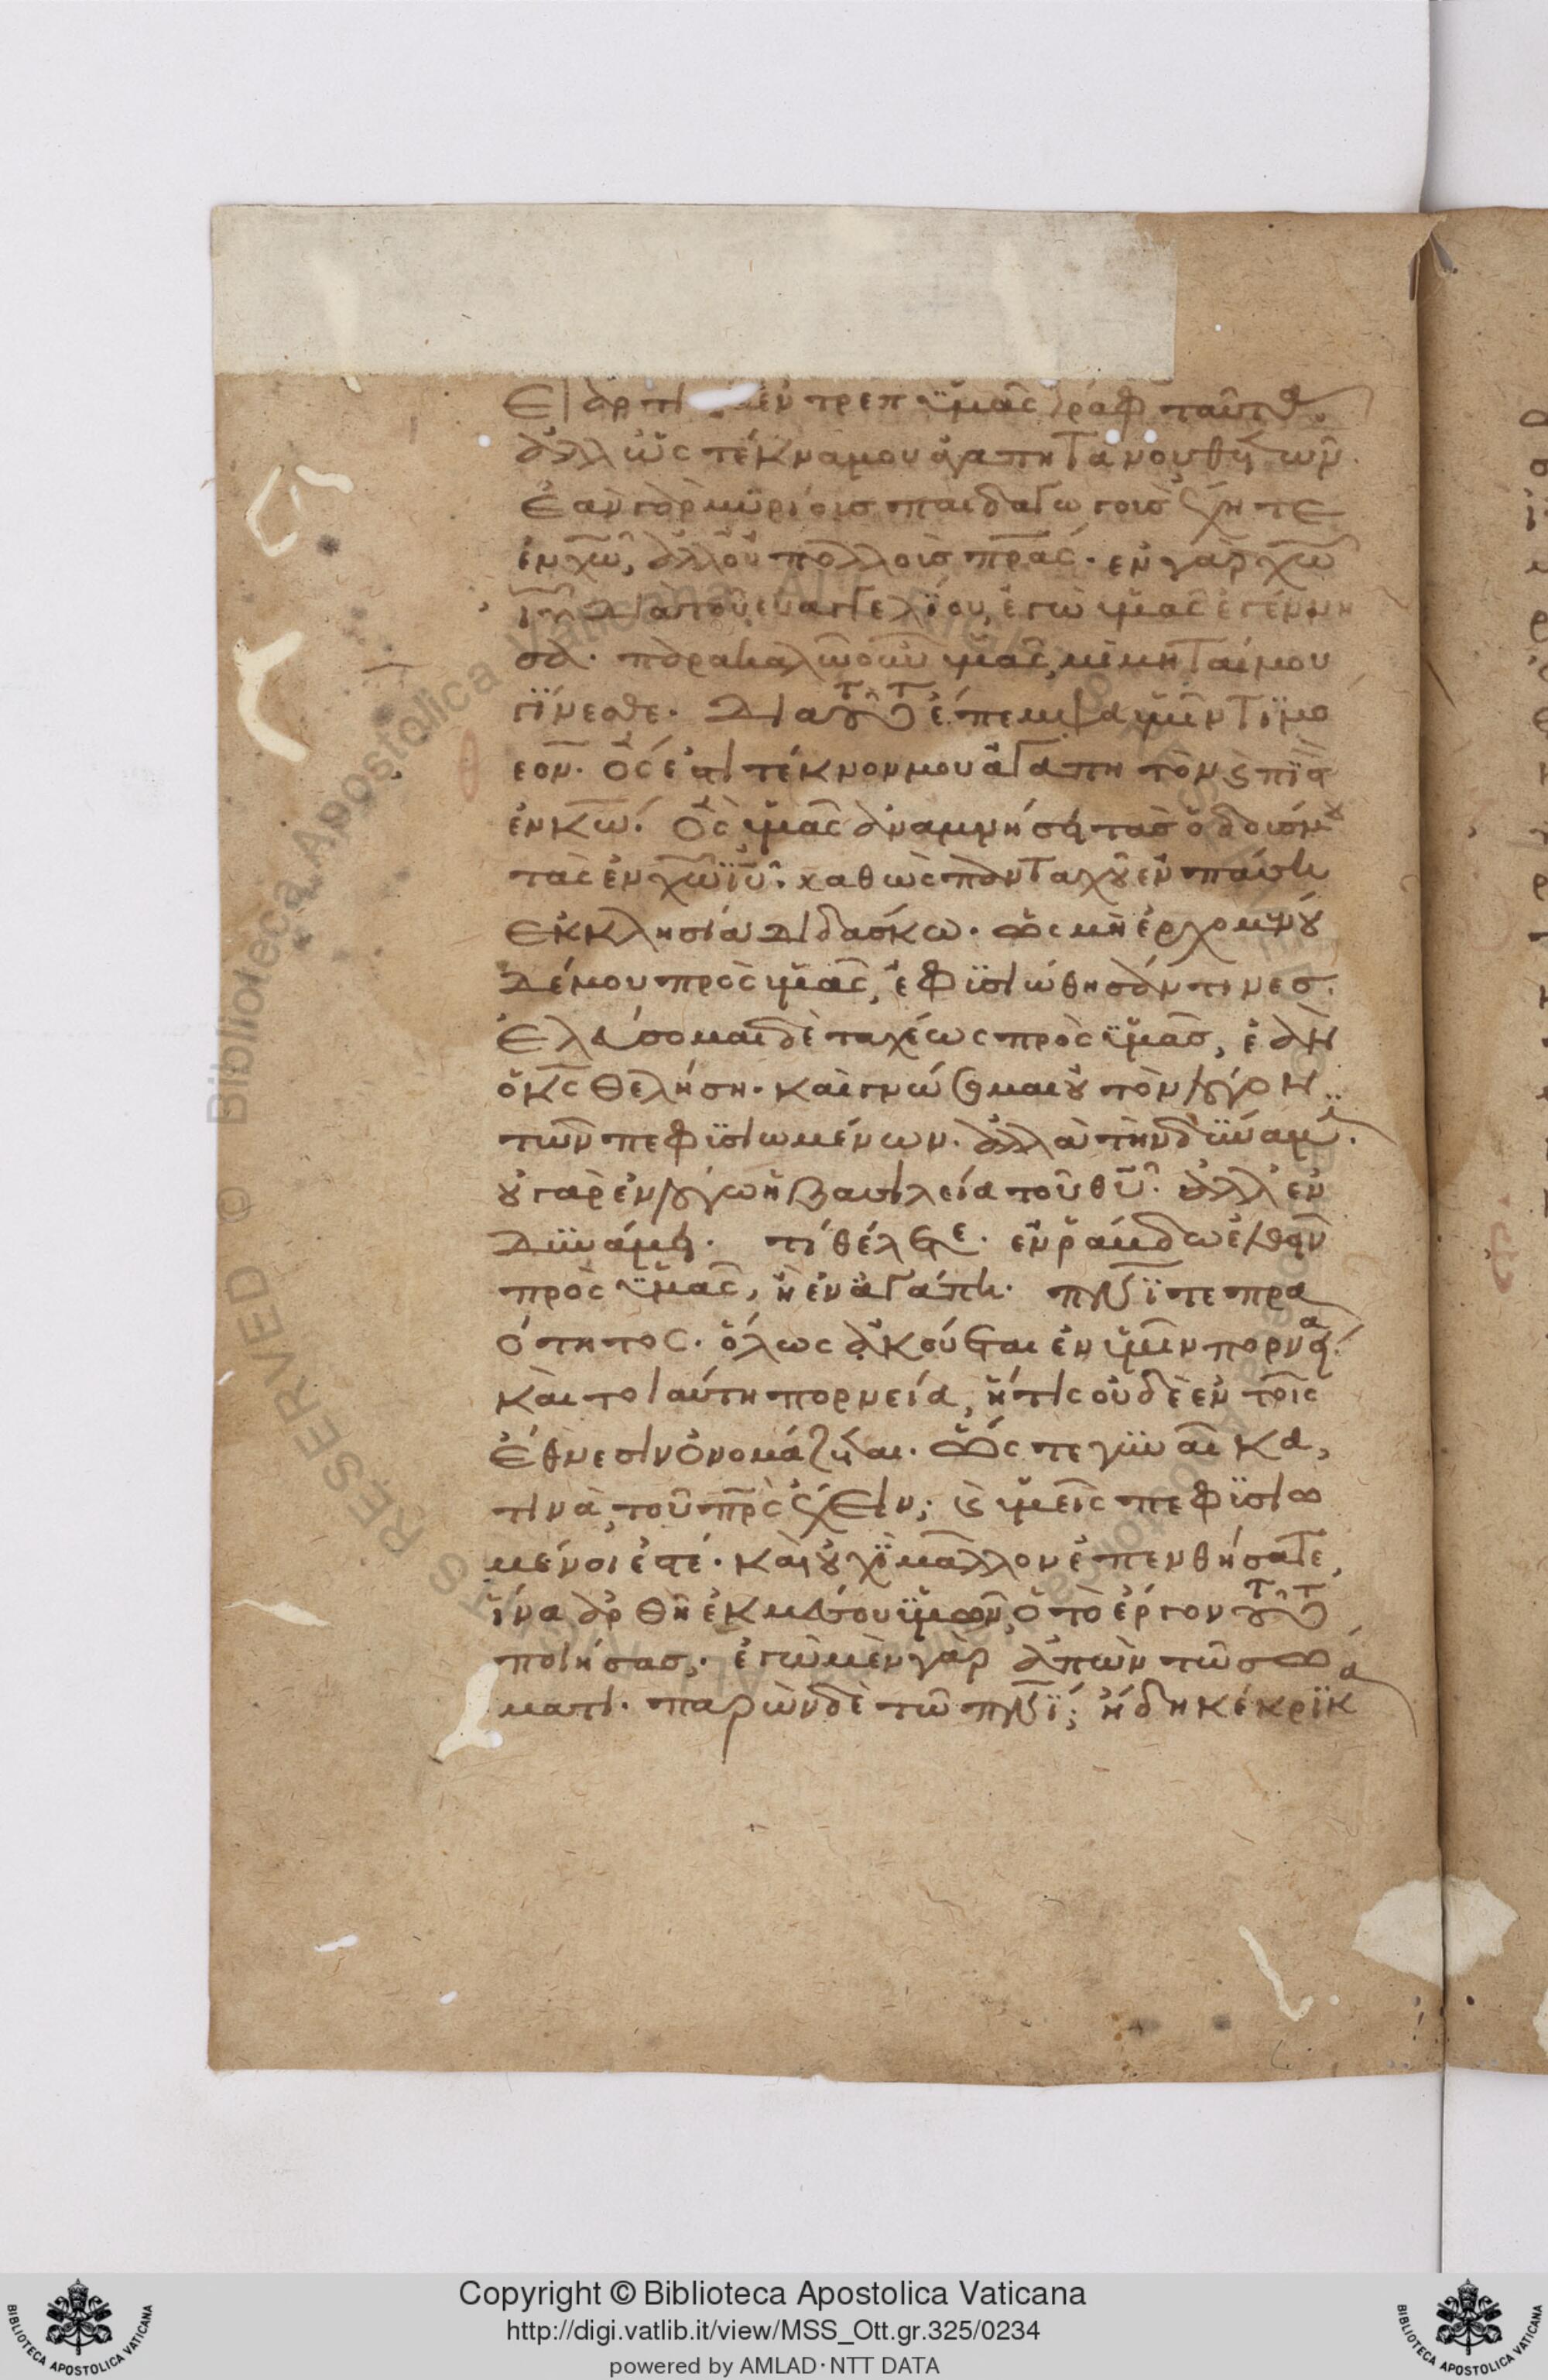 ἕως ἄρτι ἐντρέπ ὑμᾶς γράφ ταῦτα.
ἀλλ' ὡς τέκνα μου ἀγαπητὰ νουθετῶν.
Ἐὰν γὰρ μυρίοις παιδαγωγοῖς ἔχητε
ἐν χω, ἀλλ' οὐ πολλοῖς πρας. ἐν γὰρ χω
ιυ διὰ τοῦ εὐαγγελΐου, ἐγὼ ὑμᾶς ἐγέννη
σα. παρακαλῶ οὖν ὑμᾶς, μιμηταί μου
γΐνεσθε. Διὰ τοῦτο ἔπεμψα ὑμῖν Τϊμό
εον. ὅς ἐστι τέκνον μου ἀγαπητὸν ϛ πϊστ
ἐν κω. Ὃς ὑμᾶς ἀναμνήσει τὰς ὁδούς μου
τὰς ἐν χω ϊυ. καθὼς πανταχοῦ ἐν πάσῃ
ἐκκλησίᾳ διδάσκω. ὡς μὴ ἐρχομένου
δέ μου πρὸς ὑμᾶς, ἐφϊσιώθησάν τινες.
Ἐλεύσομαι δὲ ταχέως πρὸς ὑμᾶς, ἐὰν
ὁ κς θελήση. καὶ γνώσομαι οὐ τὸν λόγον
τῶν πεφϊσιωμένων. ἀλλὰ τὴν δύναμϊ.
οὐ γὰρ ἐν λόγω ἡ βασιλεία τοῦ θυ. ἀλλ' ἐν
Δυνάμει. τί θέλετε. ἐν ῥάβδω ἔλθω
πρὸς ὑμᾶς, ἢ ἐν ἀγάπη. πνϊ τε πρα
ότητος. ὅλως ἀκούεται ἐν ὑμῖν πορνεία.
Καὶ τοιαύτη πορνεία, ἥτις οὐδὲ ἐν τοῖς
ἔθνεσιν ὀνομάζεται. ὥς τε γυναῖκα,
τινὰ, τοῦ πρς ἔχειν; ϛ ὑμεῖς πεφϊσιω
μένοι ἐστέ. καὶ οὐχϊ μᾶλλον ἐπενθήσατε,
ἵνα ἀρθῆ ἐκ μέσου ὑμῶν, ὁ τὸ ἔργον τοῦτο
ποιήσας,. ἐγὼ μὲν γὰρ ἀπὼν τῶ σώ
ματι. παρὼν δὲ τῶ πνϊ; ἤδη κέκρϊκα
Copyright © Biblioteca Apostolica Vaticana
http://digi.vatlib.it/view/MSS_Ott.gr.325/0234
powered by AMLAD·NTT DATA